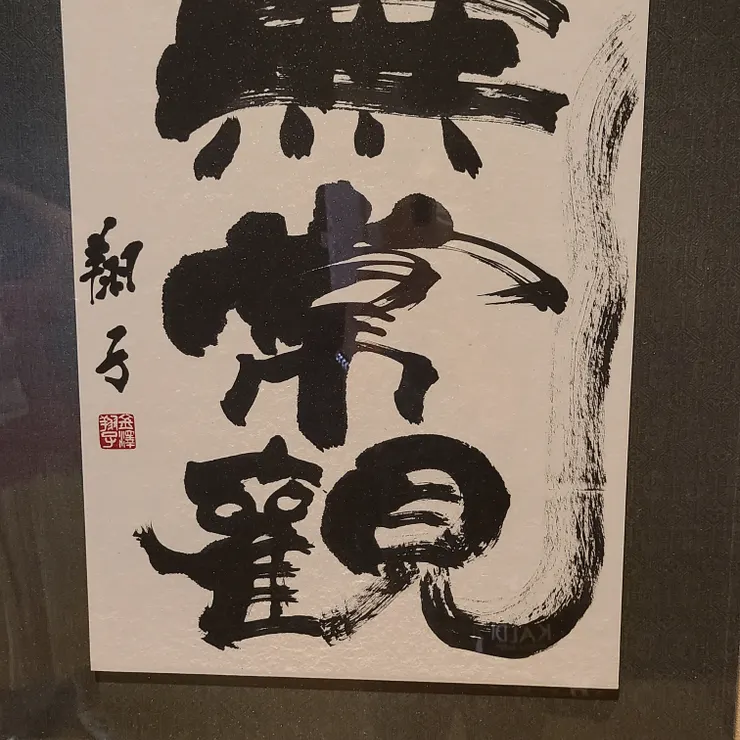 無
常
觀
翔子
金澤
翔子